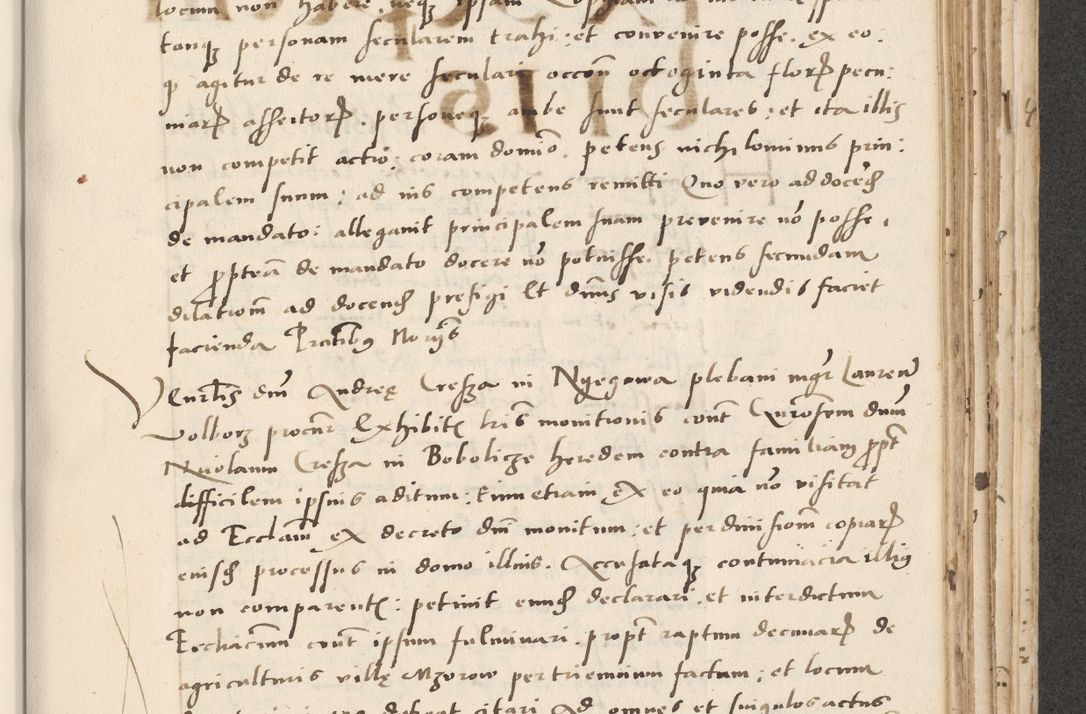 locum non habere, neqꝫ ipsam
tanqꝫ personam secularem trahi: et convenire posse. ex eo:
qꝫ agitur de re mere seculari occon̄ octoginta florꝝ pecu:
niarꝝ assertorꝝ. personeqꝫ ambe sunt seculares: et ita illis
non competit actio: coram domino. petens nichilominus prin:
cipalem suum: ad ius competens remitti Quo vero ad docend
de mandato: allegavit principalem suam prevenire no posse,
et ꝓpterea de mandato docere no potuisse. petens secundam
dilationem ad docend prefigi Et dnus visis videndis faciet
facienda Pntibus Noriis
Venrlis dni Andreę Cresza in Nyegowa plebani mgr Laurent
Volborz procur Exhibitꝫ lris monitionis cont Gnrosum dnum
Nicolaum Cresza in Bobolicze heredem contra familiam propt
difficilem ipsius aditum: tum etiam ex eo quia no visitat
ad Ecclam ex decreto dni monitum: et per dimissionem copiarꝝ
eiusd processus in domo illius. Accusataqꝫ contumacia illius
non comparentꝫ: petivit eund declarari. et interdictum
Eccliacum cont ipsum fulminari. propt raptum decimarꝝ de
agriculturis villę Mzorow per triennium factum: et locum
citari Ad omnes et singulos actus